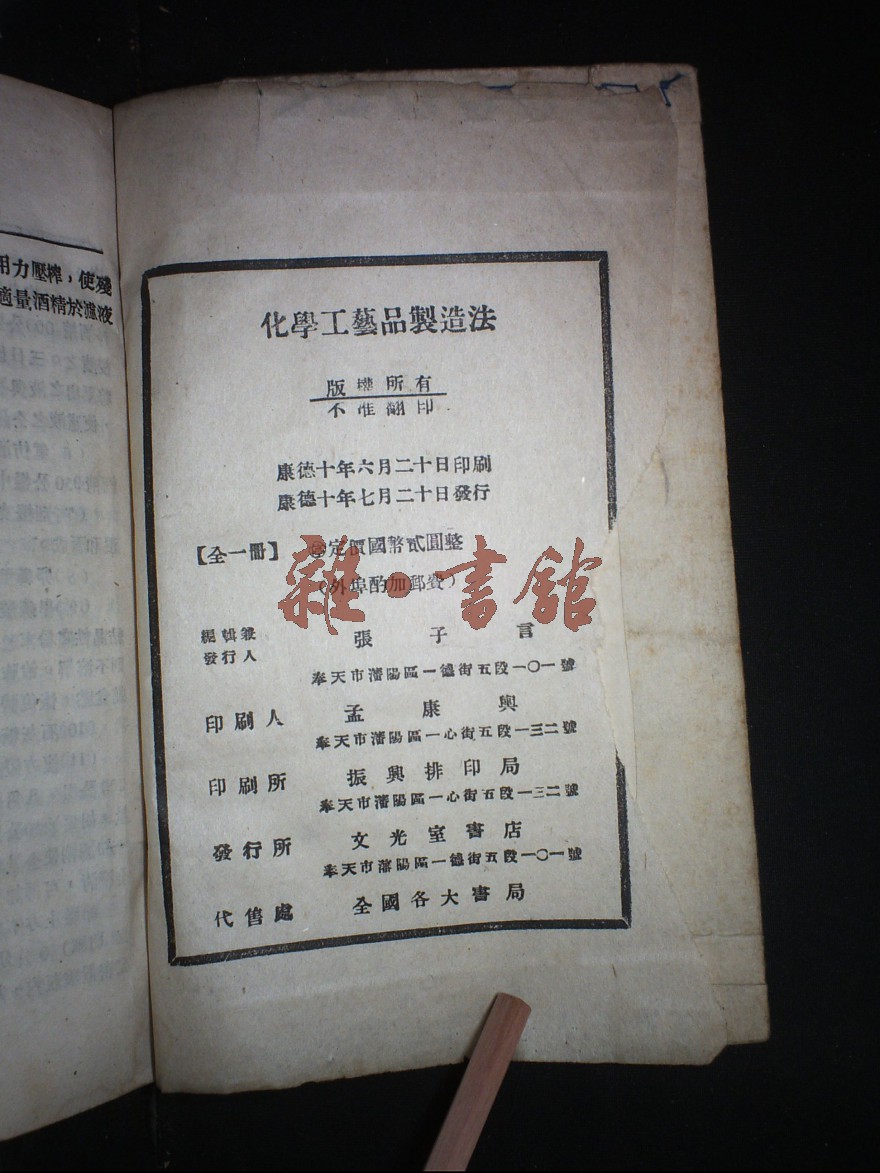 用力壓榨，使殘
適量酒精於濾液
化學工藝品製造法
版權所有
不准翻印
康德十年六月二十日印刷
康德十年七月二十日發行
【全一冊】 定價國幣貳圓整
（外埠酌加郵費）
編輯兼
發行人 張子言
奉天市瀋陽區一德街五段一〇一號
印刷人 孟康興
奉天市瀋陽區一心街五段一三二號
印刷所 振興排印局
奉天市瀋陽區一心街五段一三二號
發行所 文光室書店
奉天市瀋陽區一德街五段一〇一號
代售處 全國各大書局
雜·書館